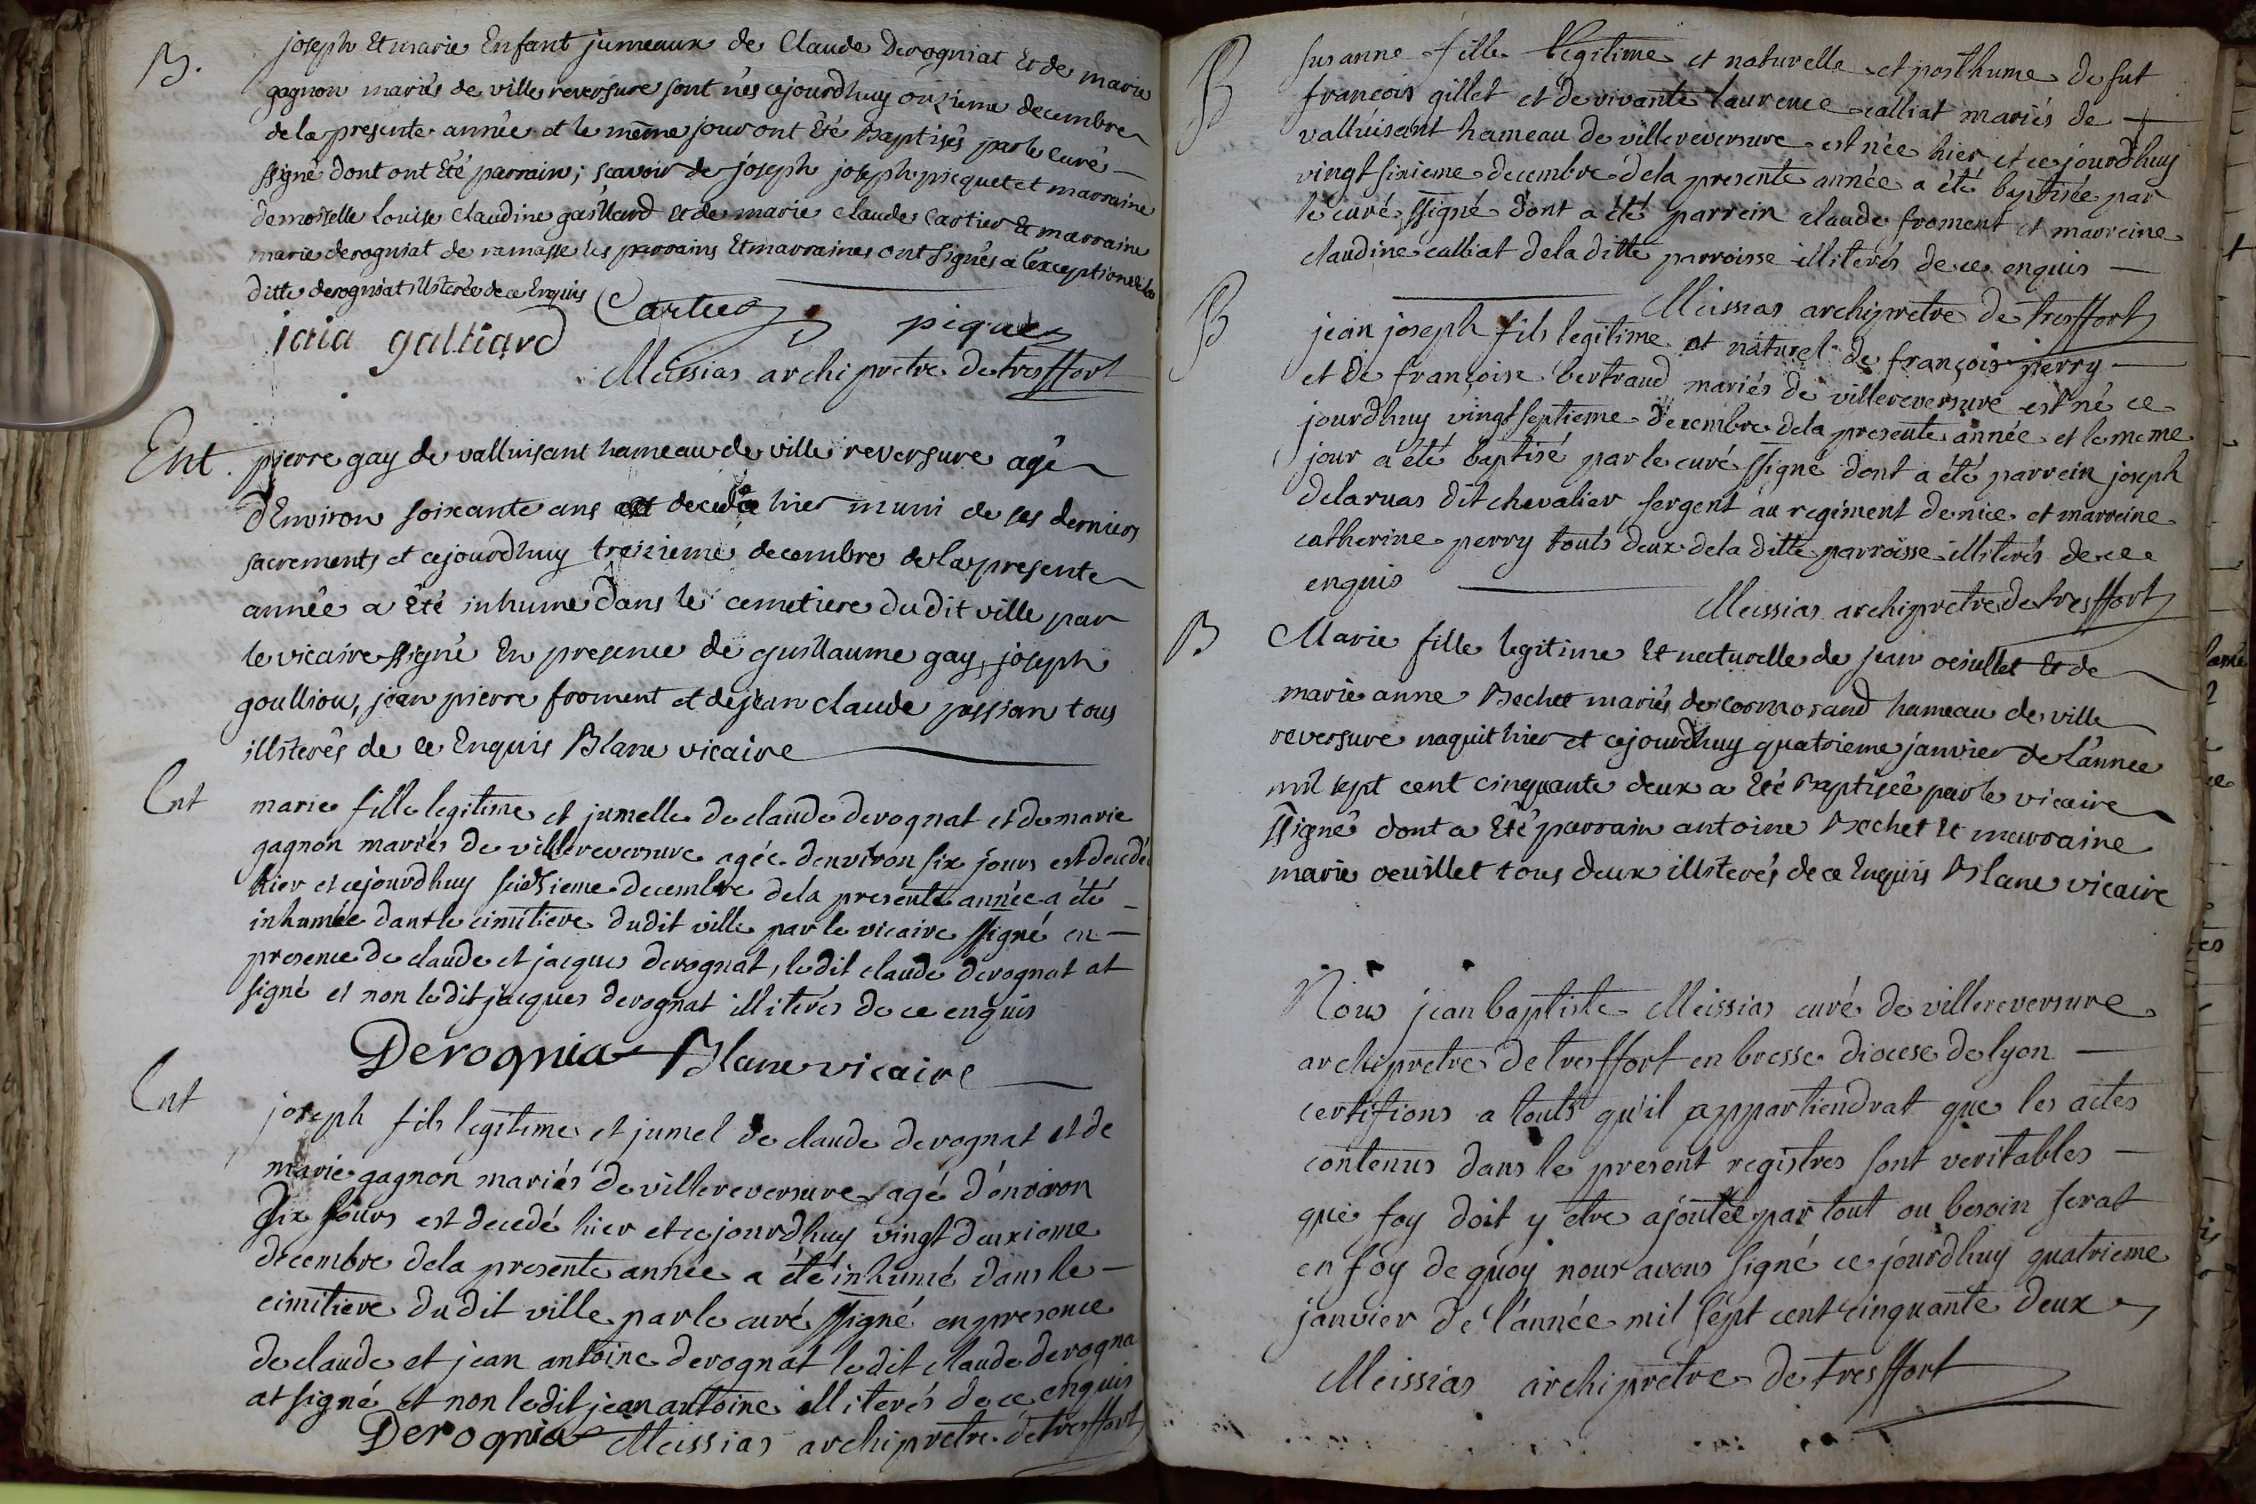 B. joseph Et marie Enfant jumeaux de Claude Derogniat Et de marie
gagnon mariés de ville reversure sont nés cejourdhuy onzieme decembre
de la presente année et le même jour ont Eté Baptisés par le curé
ssigné dont ont Eté parrain, scavoir de joseph joseph picquet et marraine
demoiselle Louise Claudine gaillard et de marie Claude Cartier Et marraine
marie derogniat de ramasse les parrains Et marraines ont signés a l'exception de la
ditte derogniat illiterée de ce Enquis
galliard Cartier piquet
Meissias archiprêtre de tresffort
Ent. pierre gay de valluisant hameau de ville reversure agé
d'Environ soixante ans est decedé hier muni de ses derniers
sacrements et cejourdhuy treizieme decembre de la presente
année a Eté inhumé dans le cemetiere dudit ville par
le vicaire ssigné En presence de guillaume gay, joseph
goulliou, jean pierre froment et de jean claude possian tous
illiterés de ce Enquis Blanc vicaire
Ent marie fille legitime et jumelle de claude derognat et de marie
gagnon mariés de villereversure agée d'environ six jours est decedée
hier et cejourdhuy seidzieme decembre de la presente année a été
inhumée dant le cimitiere dudit ville par le vicaire ssigné en
presence de claude et jacques derognat, ledit claude derognat at
signé et non ledit jacques derognat illiterés de ce enquis
Derognia Blanc vicaire
Ent joseph fils legitime et jumel de claude derognat et de
marie gagnon mariés de villereversure agé d'environ
dix jours est decedé hier et cejourdhuy vingt deuxieme
decembre de la presente année a été inhumé dans le
cimitiere dudit ville par le curé ssigné en presence
de claude et jean antoine derognat ledit claude derogna
at signé et non ledit jean antoine illiterés de ce enquis
Derognia Meissias archiprêtre de tresffort
B susanne fille legitime et naturelle et posthume de fut
francois gillet et de vivante laurence calliat mariés de
valluisant hameau de villereversure est née hier et ce jourdhuy
vingt sixieme decembre de la presente année a été baptisée par
le curé ssigné dont a été parrein claude froment et marreine
claudine calliat de la ditte parroisse illiterés de ce enquis
Meissias archiprêtre de tresffort
B jean joseph fils legitime et naturel de françois perry
et de françoise bertraud mariés de villereversure est né ce
jourdhuy vingt septieme decembre de la presente année et le meme
jour a été baptisé par le curé ssigné dont a été parrein joseph
delaruas dit chevalier sergent au regiment de nice et marreine
catherine perry touts deux de la ditte parroisse illiterés de ce
enquis
Meissias archiprêtre de tresffort
B Marie fille legitime Et naturelle de jean oeiullet Et de
marie anne Bochet mariés de cormorand hameau de ville
reversure naquit hier et cejourdhuy quatrieme janvier de l'année
mil sept cent cinquante deux a Eté Baptisée par le vicaire
ssigné dont a Eté parrain antoine Bochet Et marraine
marie oeuillet tous deux illiterés de ce Enquis Blanc vicaire
Nous jean baptiste Meissias curé de villereversure
archiprêtre de tresffort en bresse diocese de lyon
certifions a touts qu'il appartiendrat que les actes
contenus dans le present registres sont veritables
que foy doit y etre ajoutée par tout ou besoin serat
en foy de quoy nous avons signé ce jourdhuy quatrieme
janvier de l'année mil sept cent cinquante deux
Meissias archiprêtre de tresffort